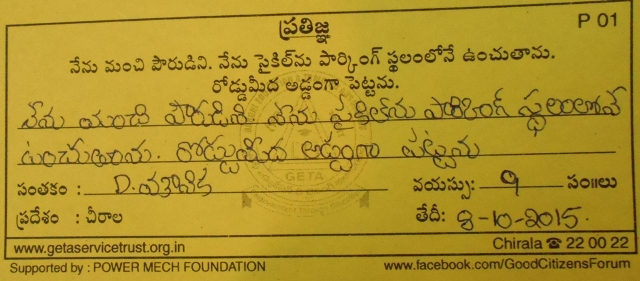 ప్రతిజ్ఞ
P 01
నేను మంచి పౌరుడిని. నేను సైకిల్‌ను పార్కింగ్ స్థలంలోనే ఉంచుతాను.
రోడ్డుమీద అడ్డంగా పెట్టను.
నేను మంచి పౌరుడిని నేను సైకిల్‌ను పార్కింగ్ స్థలంలోనే
ఉంచుతాను. రోడ్డుమీద అడ్డంగా పెట్టను
సంతకం : D.
వయస్సు: 9 సం॥లు
ప్రదేశం : చీరాల
తేదీ: 8-10-2015.
GETA
www.getaservicetrust.org.in
Chirala ☎ 22 00 22
Supported by : POWER MECH FOUNDATION
www.facebook.com/GoodCitizensForum